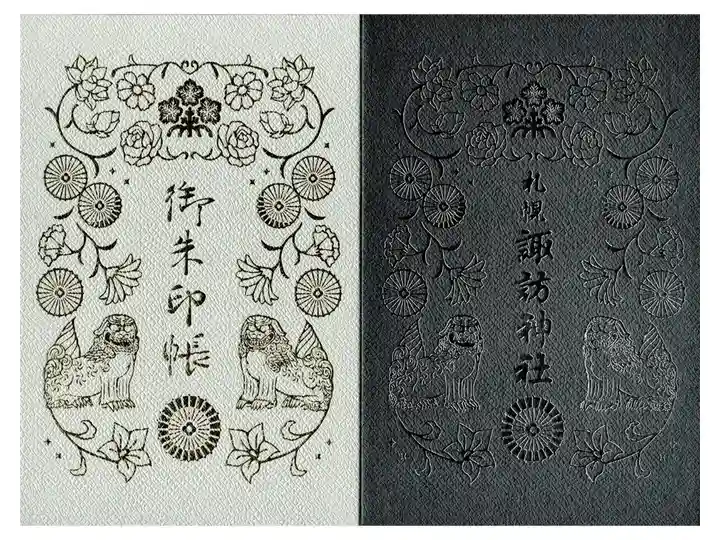 御朱印帳
札幌
諏訪神社